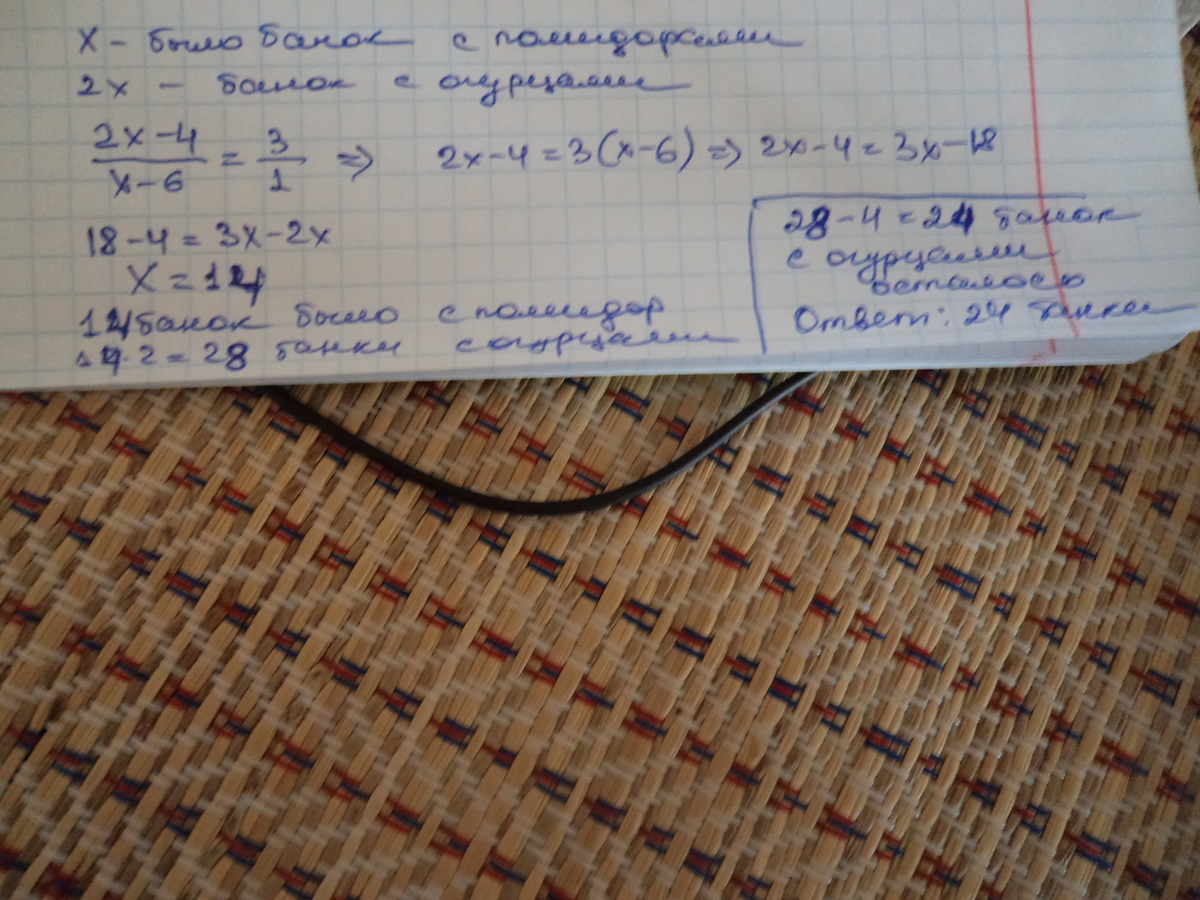 x - было банок с помидорами
2x - банок с огурцами
(2x-4)/(x-6) = 3/1 => 2x-4=3(x-6) => 2x-4=3x-18
18-4=3x-2x
x=14
14 банок было с помидор
14·2=28 банки с огурцами
28-4=24 банок
с огурцами
осталось
Ответ: 24 банки